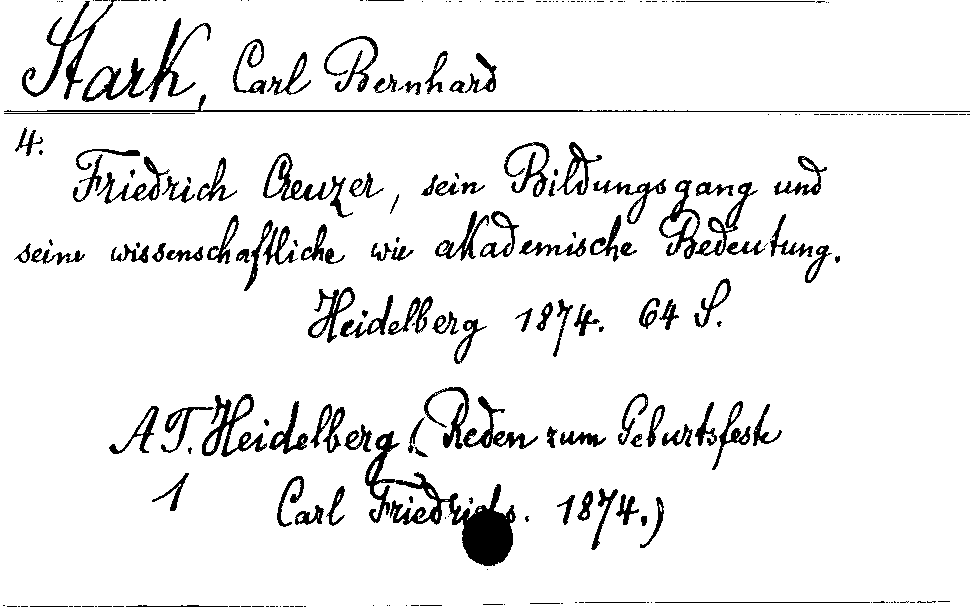 Stark, Carl Bernhard
4.
Friedrich Creuzer, sein Bildungsgang und
seine wissenschaftliche wie akademische Bedeutung.
Heidelberg 1874. 64 S.
A T. Heidelberg. (Reden zum Geburtsfeste
1 Carl Friedrichs. 1874.)